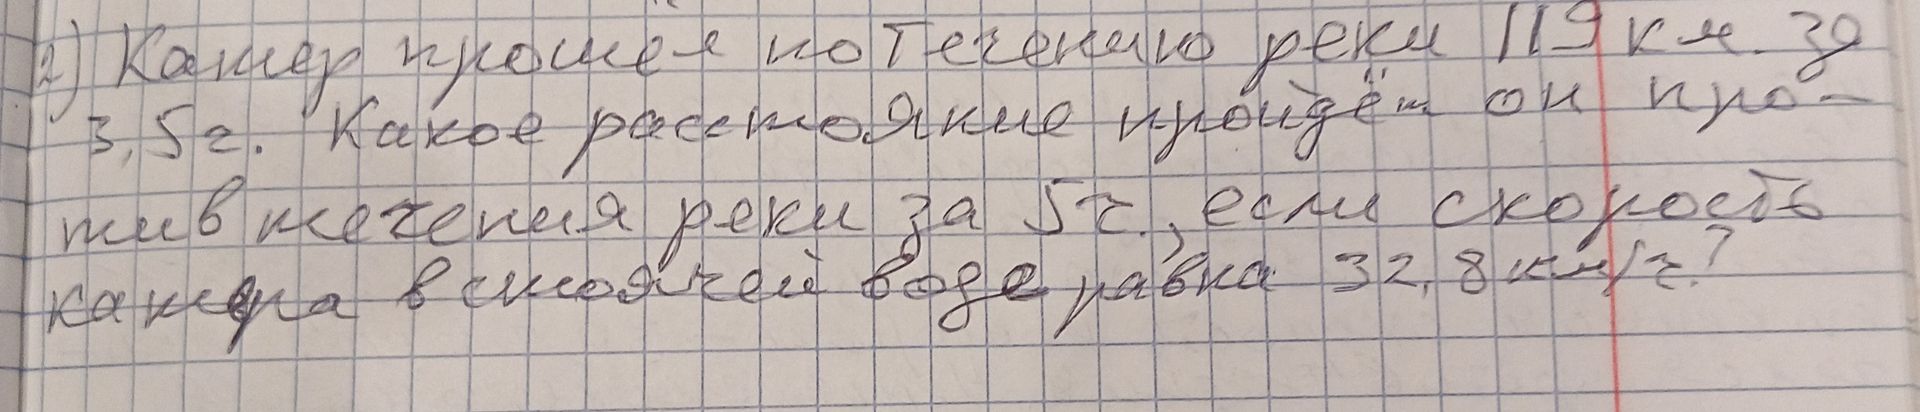 2) Катер прошёл по течению реки 119 км. за
3,5 ч. Какое расстояние пройдёт он про-
тив течения реки за 5 ч., если скорость
катера в стоячей воде равна 32,8 км/ч?